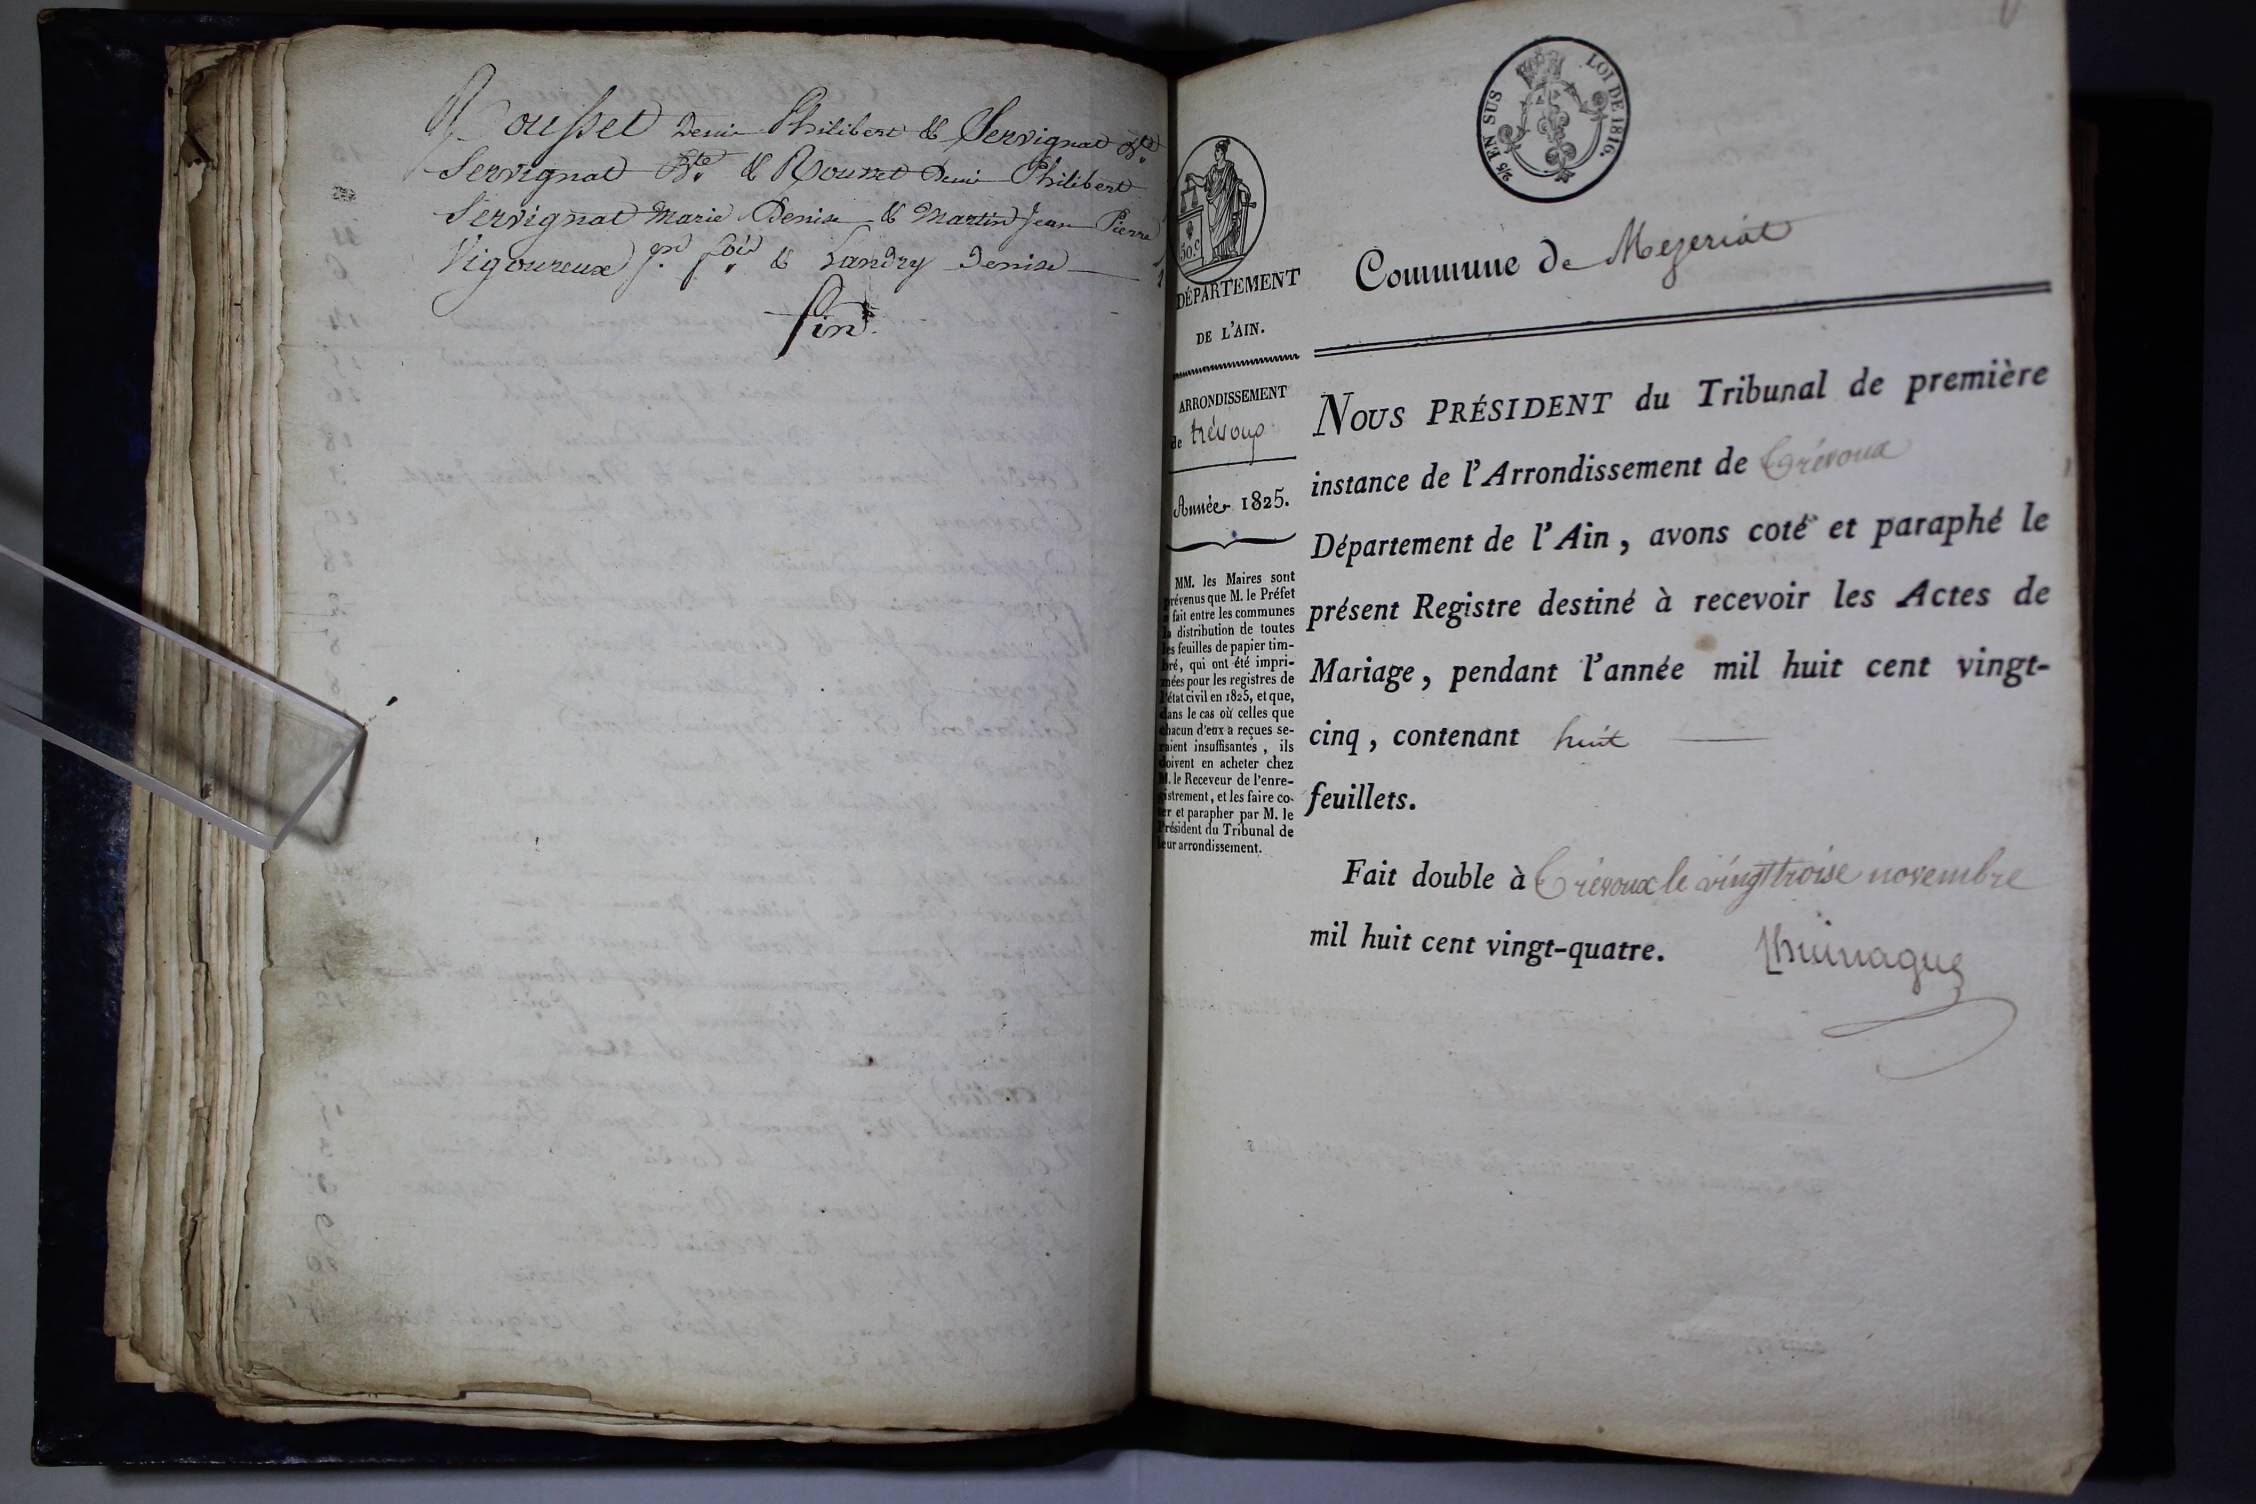 Rousset Denis Philibert & Servignat Bte
Servignat Bte & Rousset Denis Philibert
Servignat Marie Denise & Martin Jean Pierre
Vigoureux & Landry Denise
fin.
5/15 EN SUS
LOI DE 1816.
50.c
DÉPARTEMENT
DE L'AIN.
ARRONDISSEMENT
de trévoux
Année 1825.
MM. les Maires sont
prévenus que M. le Préfet
a fait entre les communes
la distribution de toutes
les feuilles de papier tim-
bré, qui ont été impri-
mées pour les registres de
l'état civil en 1825, et que,
dans le cas où celles que
chacun d'eux a reçues se-
raient insuffisantes, ils
doivent en acheter chez
M. le Receveur de l'enre-
gistrement, et les faire co-
ter et parapher par M. le
Président du Tribunal de
leur arrondissement.
Commune de Mezeriat
NOUS PRÉSIDENT du Tribunal de première
instance de l'Arrondissement de Trévoux
Département de l'Ain, avons coté et paraphé le
présent Registre destiné à recevoir les Actes de
Mariage, pendant l'année mil huit cent vingt-
cinq, contenant huit
feuillets.
Fait double à Trévoux le vingt trois novembre
mil huit cent vingt-quatre.